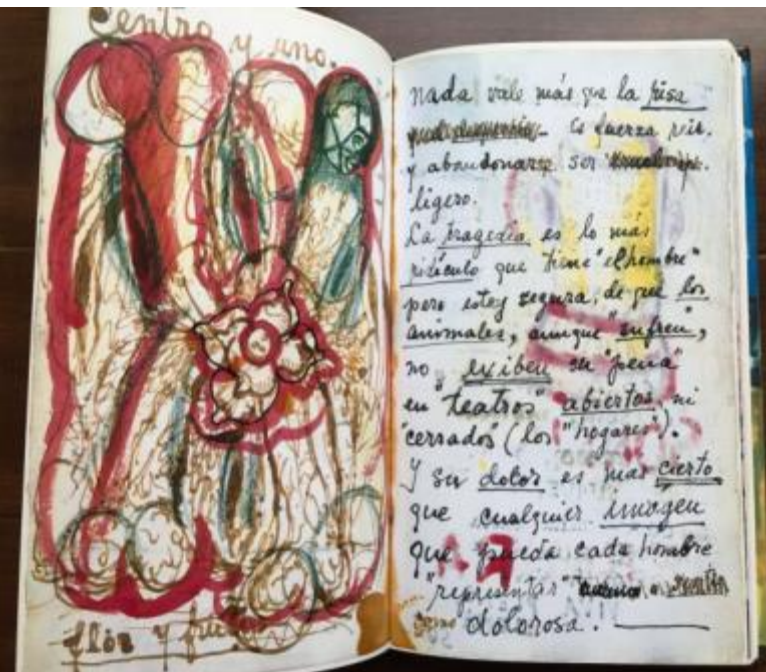 Centro y uno.
flor y frutos
nada vale más que la risa
Es fuerza reir.
y abandonarse ser
ligero.
La tragedia es lo más
ridículo que tiene "el hombre"
pero estoy segura, de que los
animales, aunque "sufren",
no exiben su "pena"
en "teatros" abiertos, ni
"cerrados" (los "hogares").
Y su dolor es mas cierto
que cualquier imágen
que pueda cada hombre
"representar"
como dolorosa.